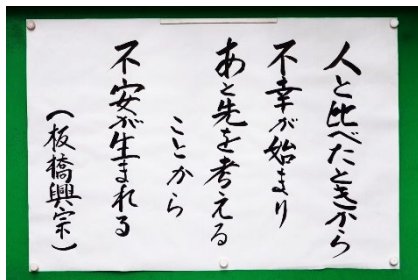 人と比べたときから
不幸が始まり
あと先を考える
ことから
不安が生まれる
(板橋興宗)